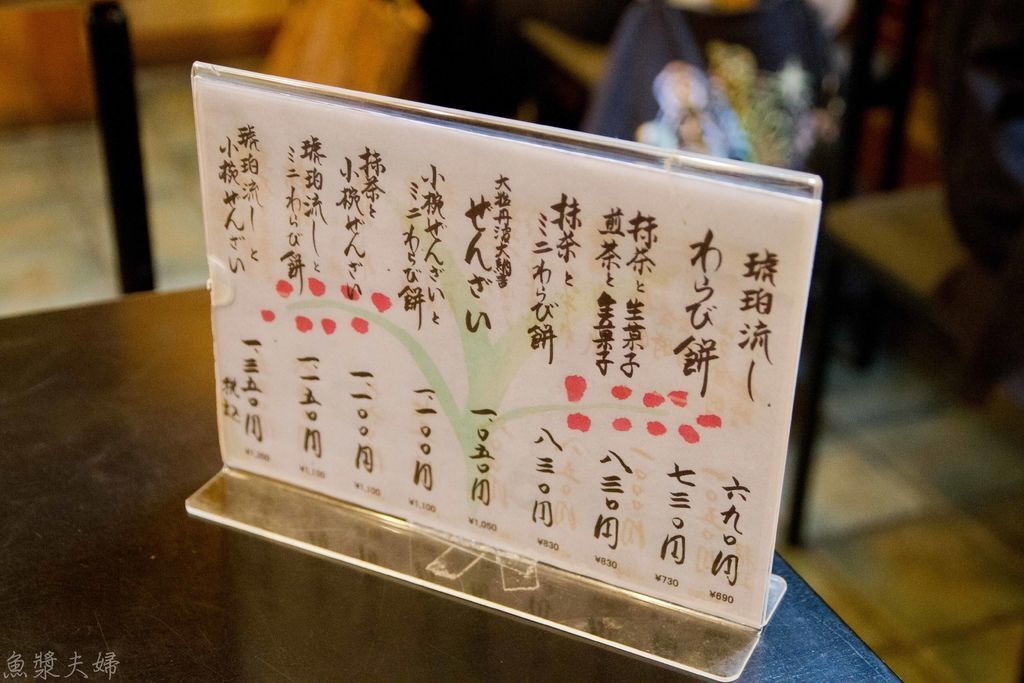 琥珀流し
六九〇円
¥690
わらび餅
七三〇円
¥730
抹茶と生菓子
煎茶と生菓子
八三〇円
¥830
抹茶と
ミニわらび餅
八三〇円
¥830
大粒丹波大納言
ぜんざい
一、〇五〇円
¥1,050
小椀ぜんざいと
ミニわらび餅
一、一〇〇円
¥1,100
抹茶と
小椀ぜんざい
一、一〇〇円
¥1,100
琥珀流しと
ミニわらび餅
一、一五〇円
琥珀流しと
小椀ぜんざい
一、三五〇円
税込
魚漿夫婦